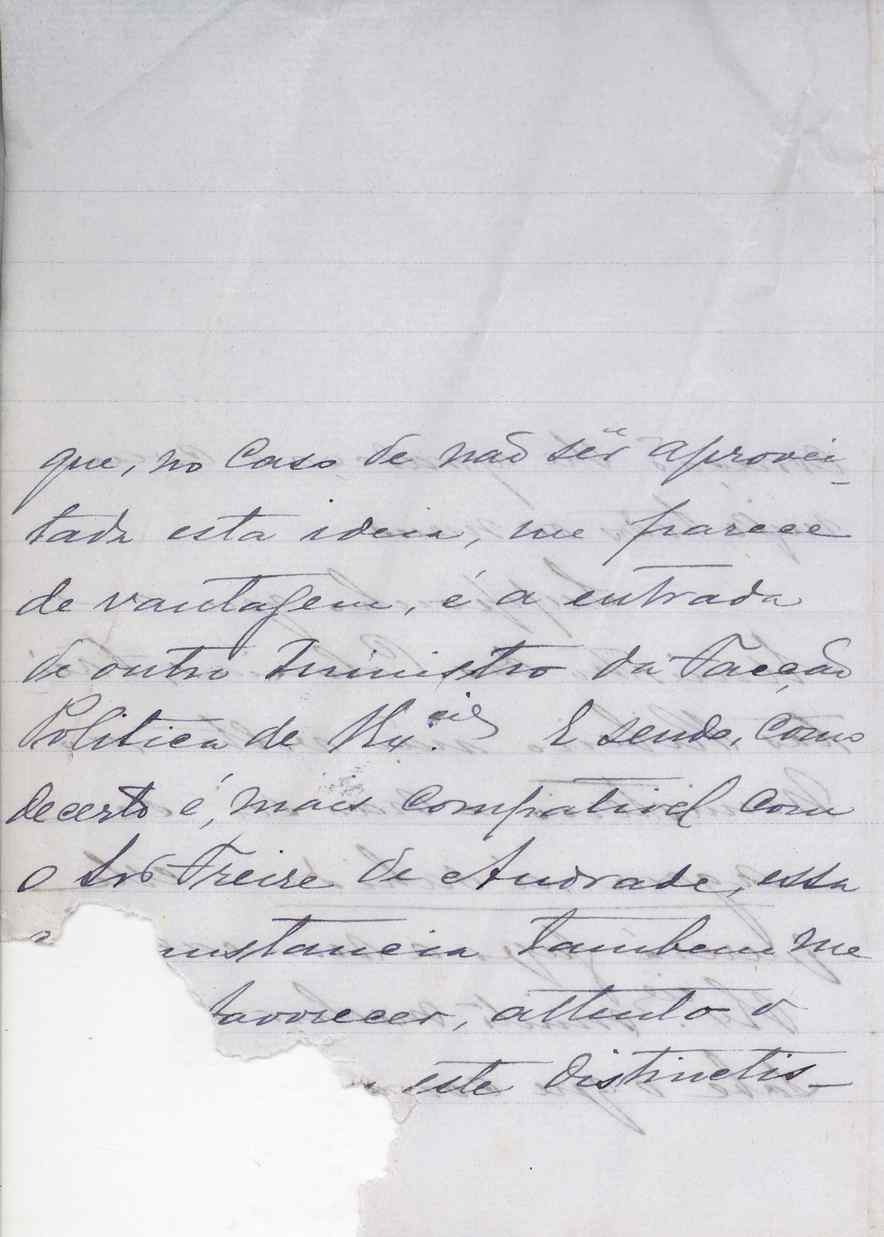 que, no caso de não ser aprovei-
tada esta ideia, me parece
de vantagem, é a entrada
de outro Ministro da Facção
Politica de V. Ex.cia E sendo, como
decerto é, mais compativel com
o Snr Freire de Andrade, essa
mstancia tambem me
favorecer, attento o
este distinctis-